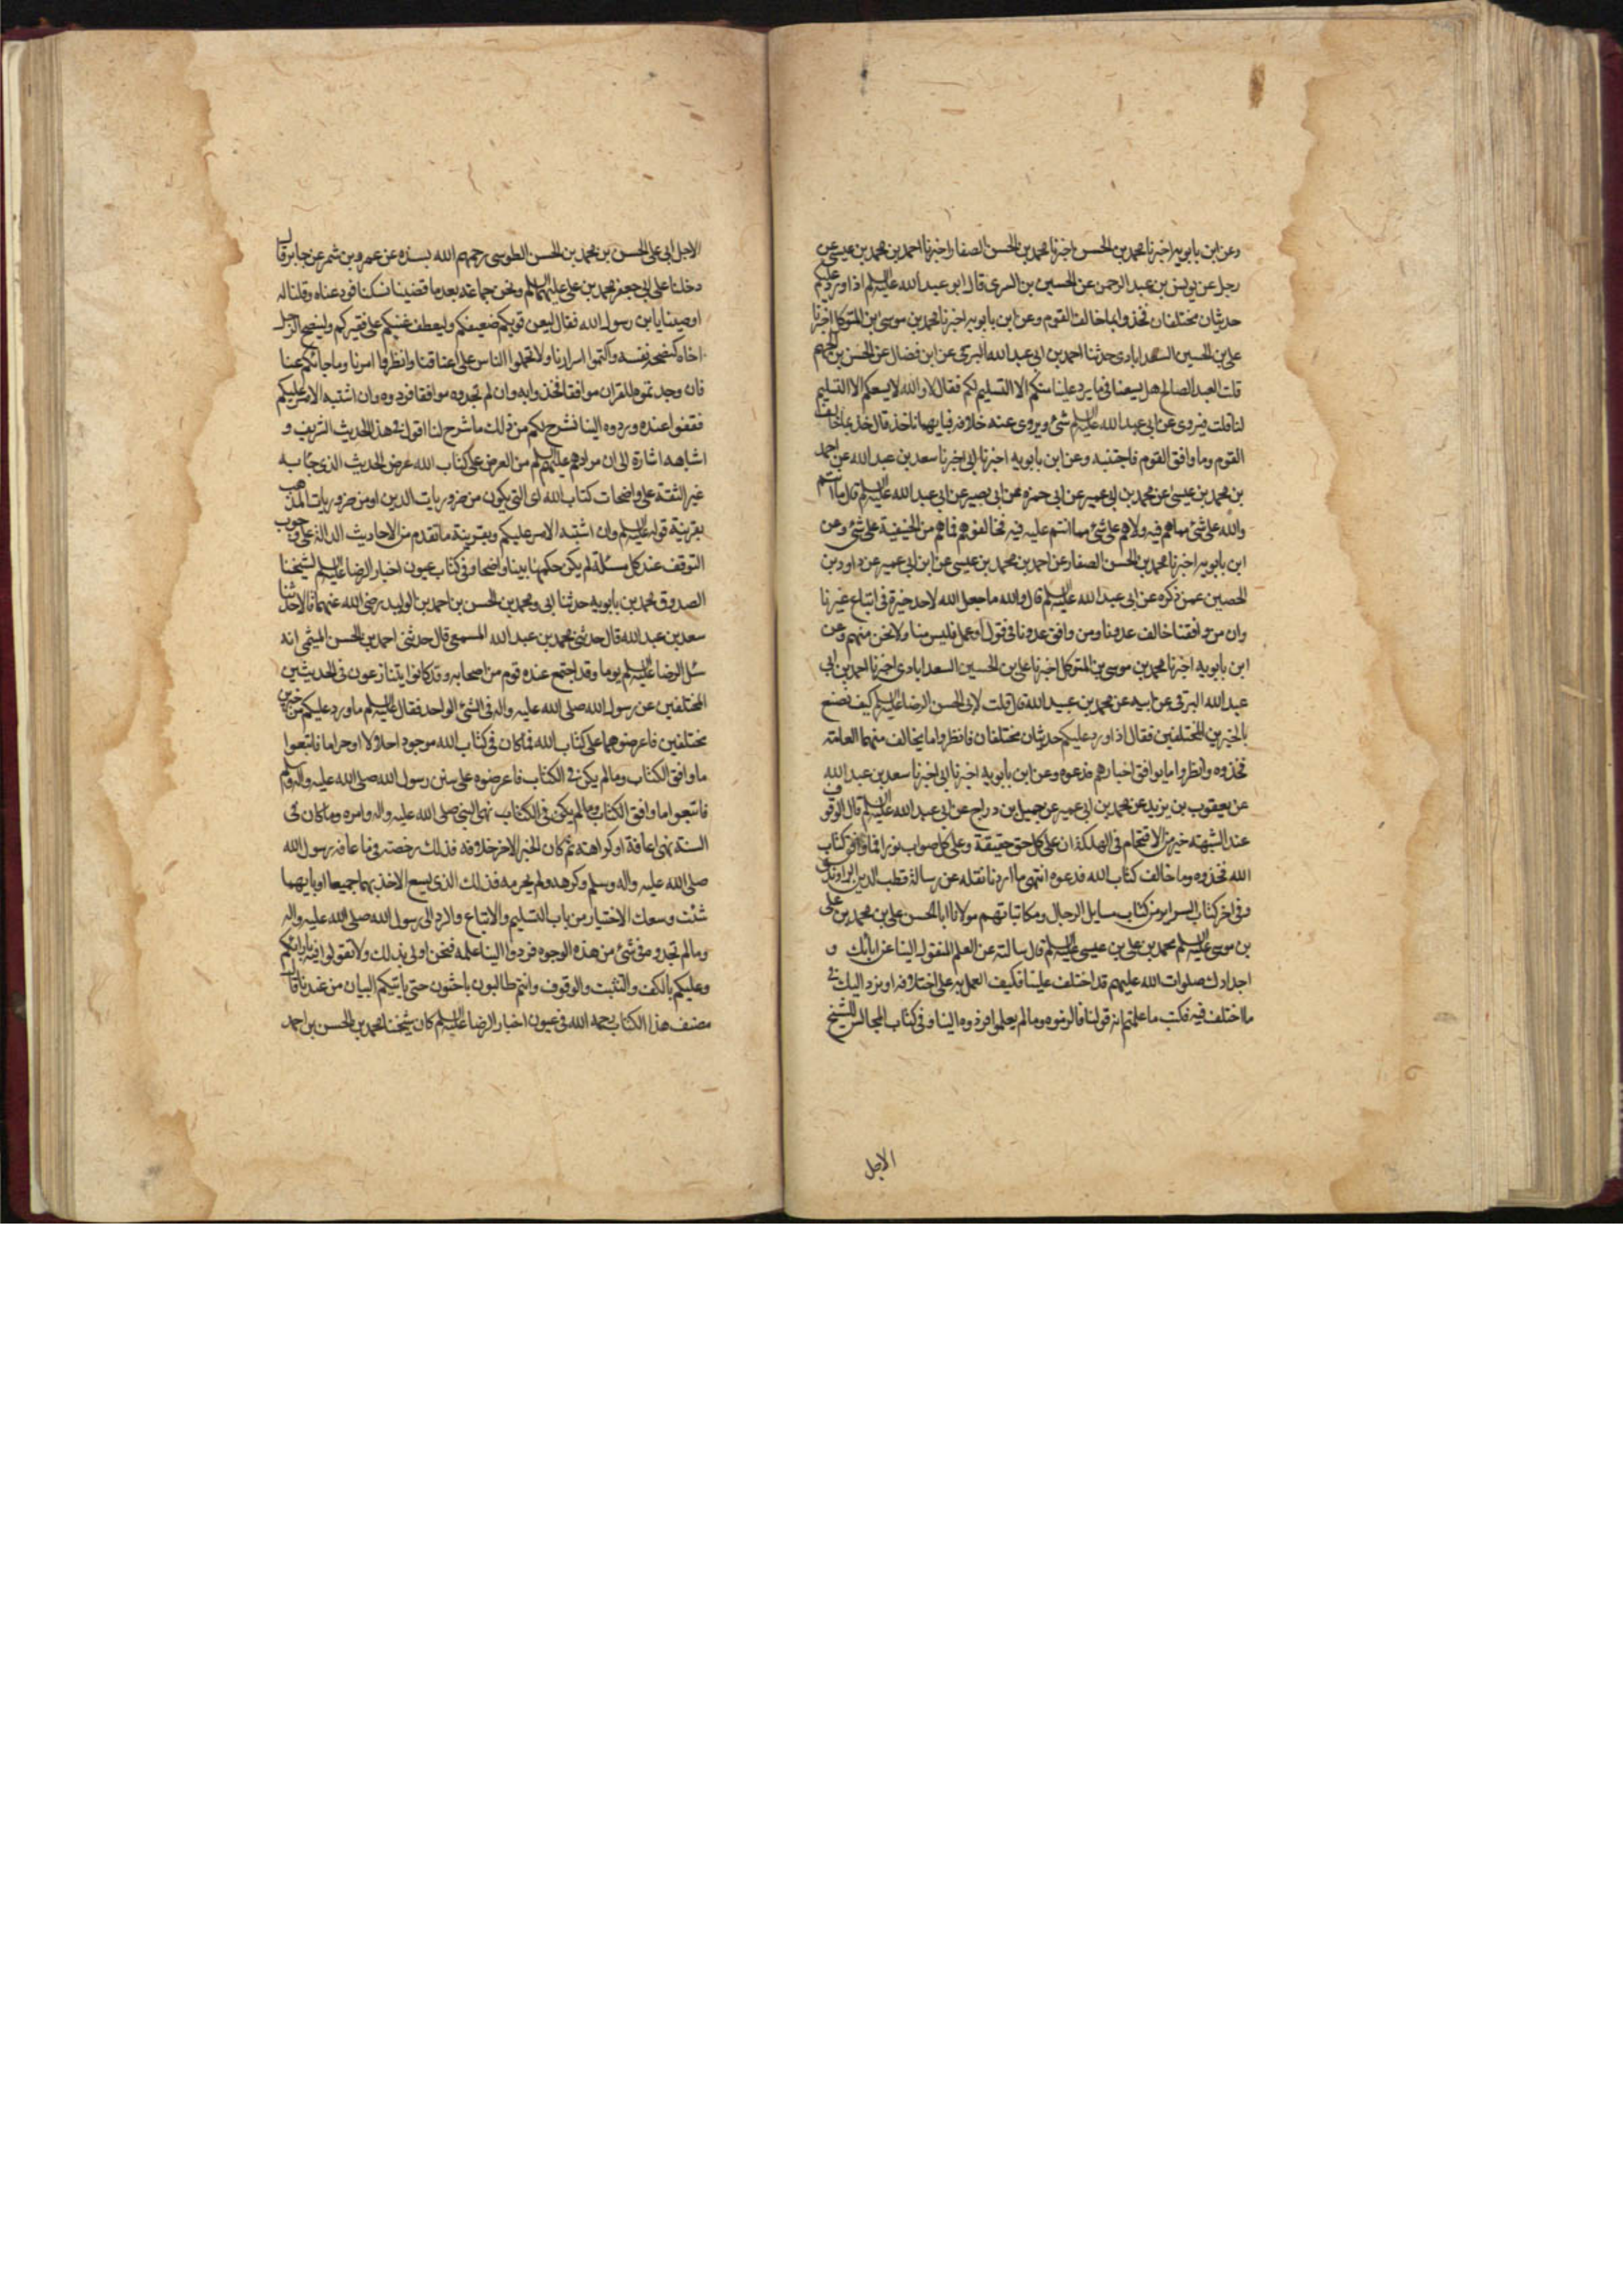 وعن ابن بابويه اخبرنا محمد بن الحسن اخبرنا محمد بن الحسن الصفار اخبرنا احمد بن محمد بن عيسى عن
رجل عن يونس بن عبد الرحمن عن الحسين بن السرى قال قال ابو عبد الله عليه السلم اذا ورد عليكم
حديثان مختلفان فخذوا بما خالف القوم وعن ابن بابويه اخبرنا محمد بن موسى بن المتوكل اخبرنا
على بن الحسين السعدابادى حدثنا احمد بن ابى عبد الله البرقى عن ابن فضال عن الحسن بن الجهم
قلت للعبد الصالح هل يسعنا فيما يرد علينا منكم الا التسليم لكم فقال لا والله لا يسعكم الا التسليم
لنا قلت فيروى عن ابى عبد الله عليه السلم شئ ويروى عنه خلافه فبايهما ناخذ قال خذ بما خالف
القوم وما وافق القوم فاجتنبه وعن ابن بابويه اخبرنا ابى اخبرنا سعد بن عبد الله عن احمد
بن محمد بن عيسى عن محمد بن ابى عمير عن ابى حمزه عن ابى بصير عن ابى عبد الله عليه السلم قال ما انتم
والله على شئ مما هم فيه ولا هم على شئ مما انتم عليه فيه فخالفوهم فما هم من الحنيفية على شئ وعن
ابن بابويه اخبرنا محمد بن الحسن الصفار عن احمد بن محمد بن عيسى عن ابن ابى عمير عن داود بن
الحصين عمن ذكره عن ابى عبد الله عليه السلم قال والله ما جعل الله لاحد خيرة فى اتباع غيرنا
وان من وافقنا خالف عدونا ومن وافق عدونا فى قول او عمل فليس منا ولا نحن منهم وعن
ابن بابويه اخبرنا محمد بن موسى بن المتوكل اخبرنا على بن الحسين السعدابادى اخبرنا احمد بن ابى
عبد الله البرقى عن ابيه عن محمد بن عبيد الله قال قلت لابى الحسن الرضا عليه السلم كيف نصنع
بالخبرين المختلفين فقال اذا ورد عليكم حديثان مختلفان فانظروا ما يخالف منهما العامة
فخذوه وانظروا ما يوافق اخبارهم فدعوه وعن ابن بابويه اخبرنا ابى اخبرنا سعد بن عبد الله
عن يعقوب بن يزيد عن محمد بن ابى عمير عن جميل بن دراج عن ابى عبد الله عليه السلم قال الوقوف
عند الشبهة خير من الاقتحام فى الهلكة ان على كل حق حقيقة وعلى كل صواب نورا فما وافق كتاب
الله فخذوه وما خالف كتاب الله فدعوه انتهى ما اردنا نقله عن رسالة قطب الدين الراوندى
وفى اخر كتاب السراير من كتاب مسايل الرجال ومكاتباتهم مولانا ابا الحسن على بن محمد بن على
بن موسى عليه السلم محمد بن على بن عيسى عليه السلم قال سالته عن العلم المنقول الينا عن ابائك و
اجدادك صلوات الله عليهم قد اختلف علينا فكيف العمل به على اختلافه او نرد اليك فى
ما اختلف فيه فكتب ما علمتم انه قولنا فالزموه وما لم يعلموا فردوه الينا وفى كتاب المجالس للشيخ
الاجل
الاجل ابى على الحسن بن محمد بن الحسن الطوسى رحمهم الله بسنده عن عمرو بن شمر عن جابر قال
دخلنا على ابى جعفر محمد بن على عليهما السلم ونحن جماعة بعد ما قضينا نسكنا فودعناه وقلنا له
اوصينا يابن رسول الله فقال ليعن قويكم ضعيفكم وليعطف غنيكم على فقيركم ولينصح الرجل
اخاه كنصحه نفسه واكتموا اسرارنا ولا تحملوا الناس على اعناقنا وانظروا امرنا وما جائكم عنا
فان وجدتموه للقران موافقا فخذوا به وان لم تجدوه موافقا فردوه وان اشتبه الامر عليكم
فقفوا عنده وردوه الينا نشرح لكم من ذلك ما شرح لنا اقول فى هذا الحديث الشريف و
اشباهه اشارة الى ان مرادهم عليهم السلم من العرض على كتاب الله عرض الحديث الذى جاء به
غير الثقة على واضحات كتاب الله اى التى يكون من ضروريات الدين او من ضروريات المذهب
بقرينة قوله عليه السلم وان اشتبه الامر عليكم وبقرينة ما تقدم من الاحاديث الدالة على وجوب
التوقف عند كل مسئلة لم يكن حكمها بينا واضحا وفى كتاب عيون اخبار الرضا عليه السلم لشيخنا
الصدوق محمد بن بابويه حدثنا ابى ومحمد بن الحسن بن احمد بن الوليد رضى الله عنهما قالا حدثنا
سعد بن عبد الله قال حدثنى محمد بن عبد الله المسمعى قال حدثنى احمد بن الحسن الميثمى انه
سئل الرضا عليه السلم يوما وقد اجتمع عنده قوم من اصحابه وقد كانوا يتنازعون فى الحديثين
المختلفين عن رسول الله صلى الله عليه واله فى الشئ الواحد فقال عليه السلم ما ورد عليكم من خبرين
مختلفين فاعرضوهما على كتاب الله فما كان فى كتاب الله موجودا حلالا او حراما فاتبعوا
ما وافق الكتاب وما لم يكن فى الكتاب فاعرضوه على سنن رسول الله صلى الله عليه واله وسلم
فاتبعوا ما وافق الكتاب وما لم يكن فى الكتاب نهى النبى صلى الله عليه واله وامره وما كان فى
السنة نهى اعافة او كراهة ثم كان الخبر الاخر خلافه فذلك رخصة فيما عافه رسول الله
صلى الله عليه واله وسلم وكرهه ولم يحرمه فذلك الذى يسع الاخذ بهما جميعا او بايهما
شئت وسعك الاختيار من باب التسليم والاتباع والرد الى رسول الله صلى الله عليه واله
وما لم تجدوه فى شئ من هذه الوجوه فردوا الينا علمه فنحن اولى بذلك ولا تقولوا فيه بارائكم
وعليكم بالكف والتثبت والوقوف وانتم طالبون باحثون حتى ياتيكم البيان من عندنا قال
مصنف هذا الكتاب رحمه الله فى عيون اخبار الرضا عليه السلم كان شيخنا محمد بن الحسن بن احمد